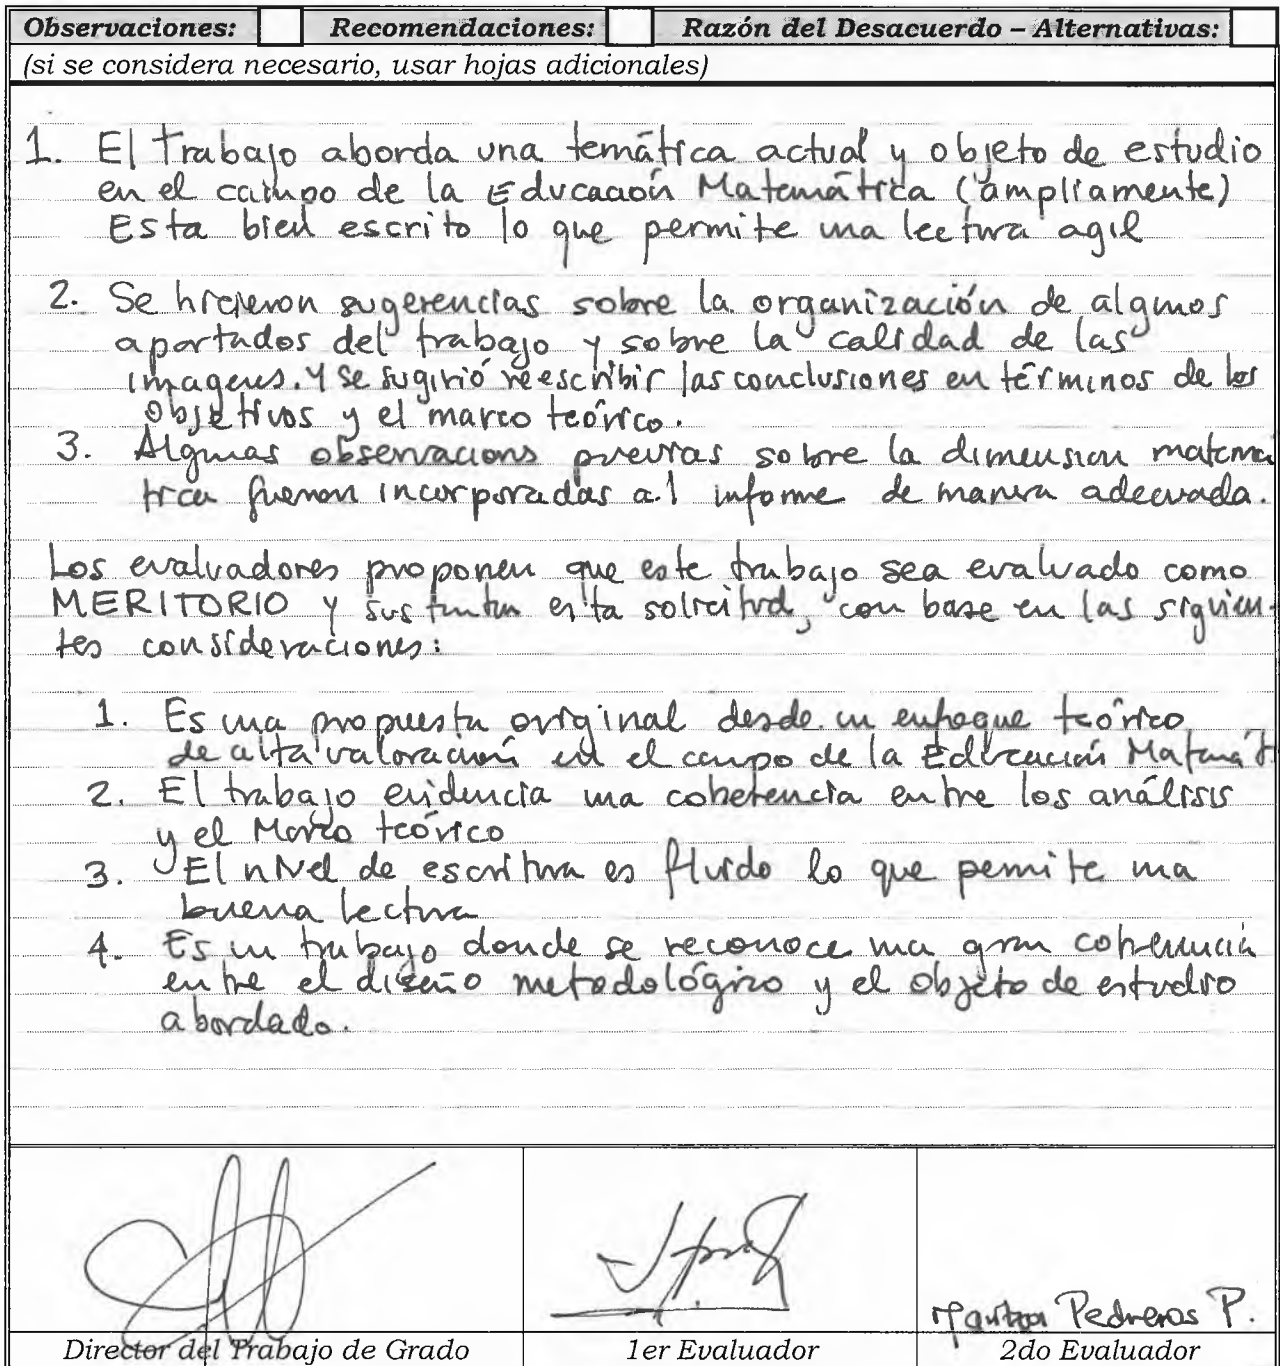 Observaciones: Recomendaciones: Razón del Desacuerdo – Alternativas:
(si se considera necesario, usar hojas adicionales)
1. El Trabajo aborda una temática actual y objeto de estudio
en el campo de la Educación Matemática (ampliamente)
Esta bien escrito lo que permite una lectura agil
2. Se hicieron sugerencias sobre la organización de algunos
apartados del trabajo y sobre la calidad de las
imagenes. Y se sugirió reescribir las conclusiones en términos de los
objetivos y el marco teórico.
3. Algunas observacions previas sobre la dimension matema
tica fueron incorporadas al informe de manera adecuada.
Los evaluadores proponen que este trabajo sea evaluado como
MERITORIO y sustentan esta solicitud, con base en las siguien-
tes consideraciones:
1. Es una propuesta original desde un enfoque teórico
de alta valoración en el campo de la Educación Matemát
2. El trabajo evidencia una coherencia entre los análisis
y el Marco teórico
3. El nivel de escritura es fluido lo que permite una
buena lectura
4. Es un trabajo donde se reconoce una gran coherencia
entre el diseño metodológico y el objeto de estudio
abordado.
Pedreros P.
Director del Trabajo de Grado 1er Evaluador 2do Evaluador